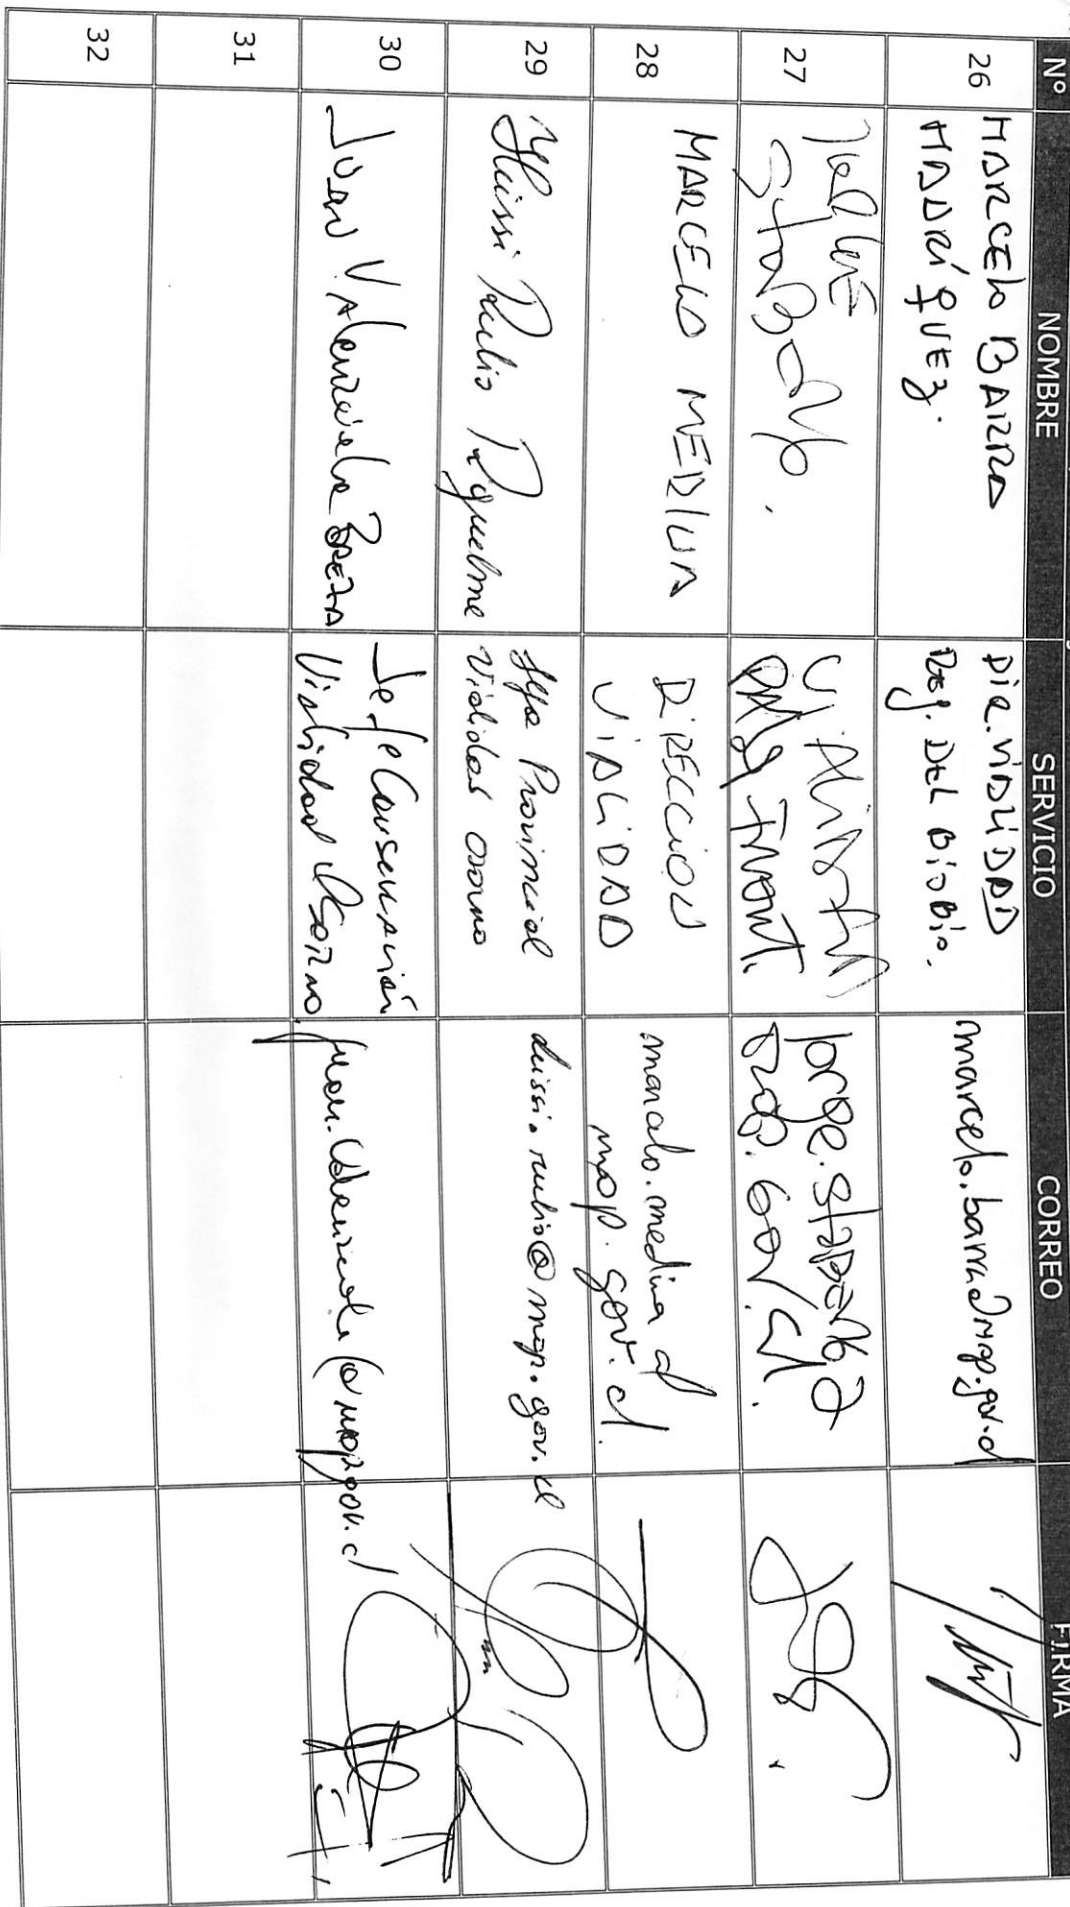 Nº NOMBRE SERVICIO CORREO FIRMA
26 MARCELO BARRA
MADRÍQUEZ.
DIR. VIALIDAD
REG. DEL BIOBIO.
marcelo.barra@mop.gov.cl
27 JORGE
VIALIDAD
28 MARCELO MEDINA
DIRECCION
VIALIDAD
marcelo.medina@
mop.gov.cl.
29 Rubio Riquelme
Jefa Provincial
Vialidad Osorno
rubio@mop.gov.cl
30 JUAN VALENZUELA
Jefe Conservación
Vialidad Osorno
juan.valenzuela@mop.gov.cl
31
32